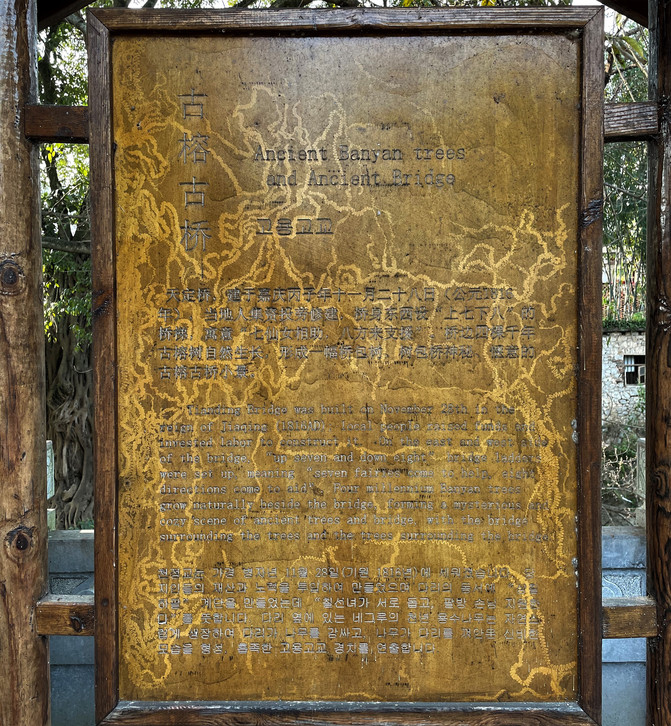 古榕古桥
Ancient Banyan trees
and Ancient Bridge
고용고교
天定桥，建于嘉庆丙子年十一月二十八日（公元1816
年），当地人集资投劳修建，桥身东西设“上七下八”的
桥梯，寓意“七仙女相助，八方来支援”。桥边四棵千年
古榕树自然生长，形成一幅桥包树、树包桥
古榕古桥小景。
Tianding Bridge was built on November 28th in the
reign of Jiaqing (1816AD). Local people raised funds and
invested labor to construct it. On the east and west side
of the bridge, "up seven and down eight" bridge ladders
were set up, meaning "seven fairies come to help, eight
directions come to aid". Four millennium Banyan trees
grow naturally beside the bridge, forming a mysterious and
cozy scene of ancient trees and bridge, with the bridge
surrounding the trees and the trees surrounding the bridge.
11월 28일(기원 1816년)에
지인들의 재산과 노력을 투입하여 만들었으며 다리의 동서에
계단을 만들었는데 "칠선녀가 서로 돕고, 팔방
다"를 뜻합니다. 다리 옆에 있는 네그루의 천년 용수나무는
럽게 생장하여 다리가 나무를 감싸고, 나무가 다리를 껴안은
모습을 형성 고용고교 경치를 연출합니다